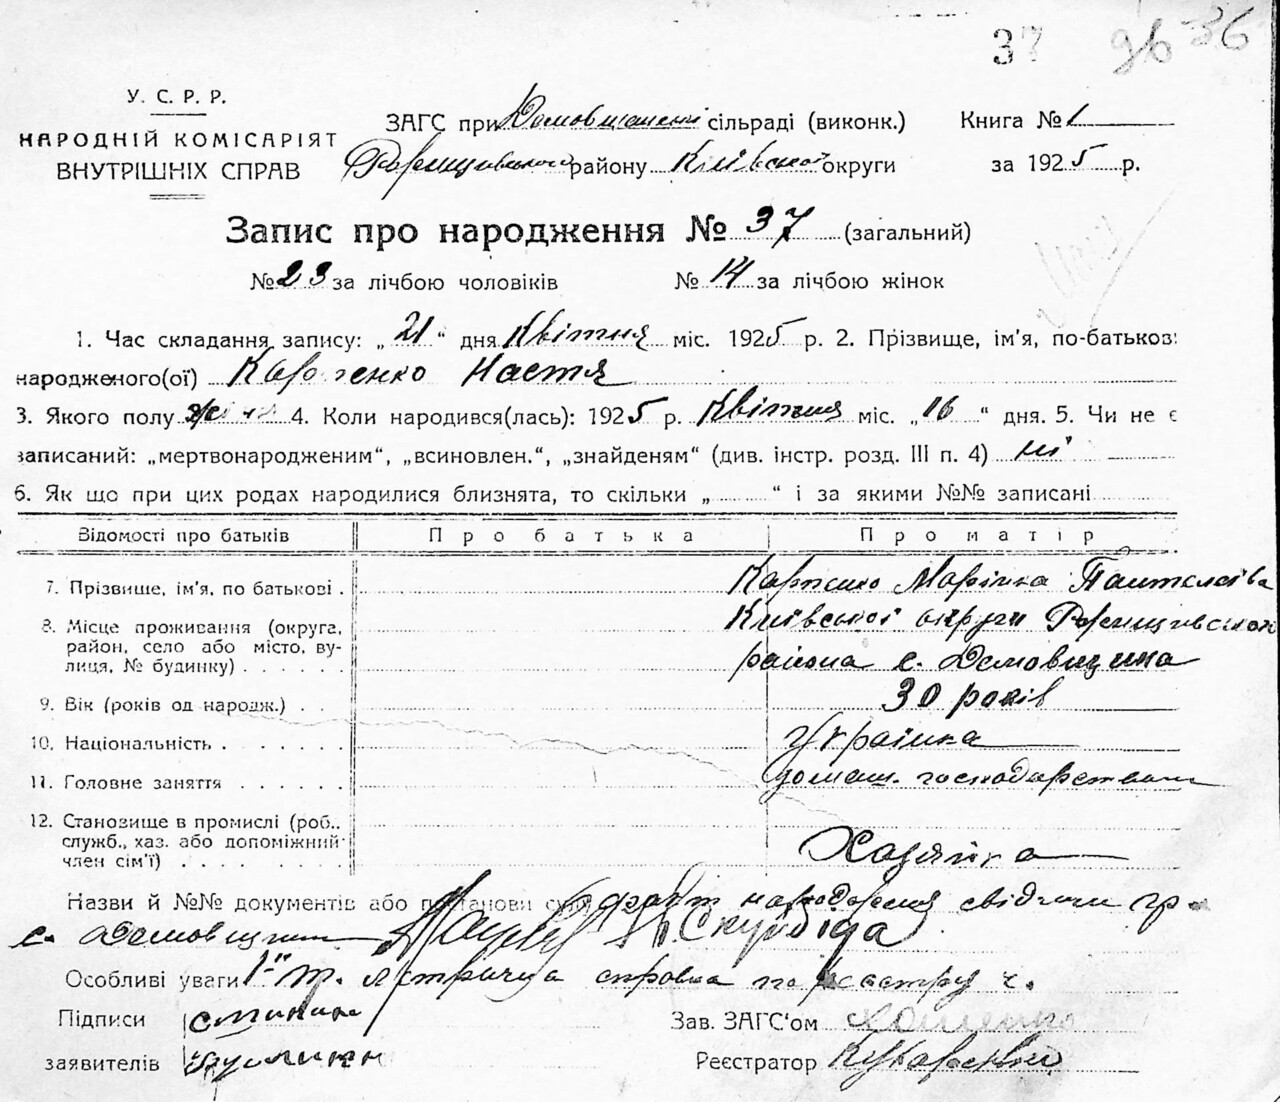 37 36
У. С. Р. Р.
НАРОДНІЙ КОМІСАРІЯТ
ВНУТРІШНІХ СПРАВ
ЗАГС при Демовщанскі сільраді (виконк.) Книга № 1
району Київської округи за 1925 р.
Запис про народження № 37 (загальний)
№ 23 за лічбою чоловіків № 14 за лічбою жінок
1. Час складання запису: „ 21 “ дня Квітня міс. 1925 р. 2. Прізвище, ім'я, по-батькові
народженого(ої) Настя
3. Якого полу жіноч 4. Коли народився(лась): 1925 р. Квітня міс. „ 16 “ дня. 5. Чи не є
записаний: „мертвонародженим“, „всиновлен.“, „знайденям“ (див. інстр. розд. III п. 4) ні
6. Як що при цих родах народилися близнята, то скільки „ “ і за якими №№ записані
Відомості про батьків Про батька Про матір
7. Прізвище, ім'я, по батькові . Марінка Пантелеїва
8. Місце проживання (округа, район, село або місто, вулиця, № будинку) . . . . . Київської округи
района с. Демовщина
9. Вік (років од народж.) . . 30 років
10. Національність . . . . . . Українка
11. Головне заняття . . . . . . домаш. господарством
12. Становище в промислі (роб., служб., хаз. або допоміжний член сім'ї) . . . . . . . Хазяйка
Назви й №№ документів або постанови суду факт народження свідчили гр.
с. Демовщини Скирбіда
Особливі уваги справка по реєстру ч.
Підписи Зав. ЗАГС'ом
заявителів Реєстратор